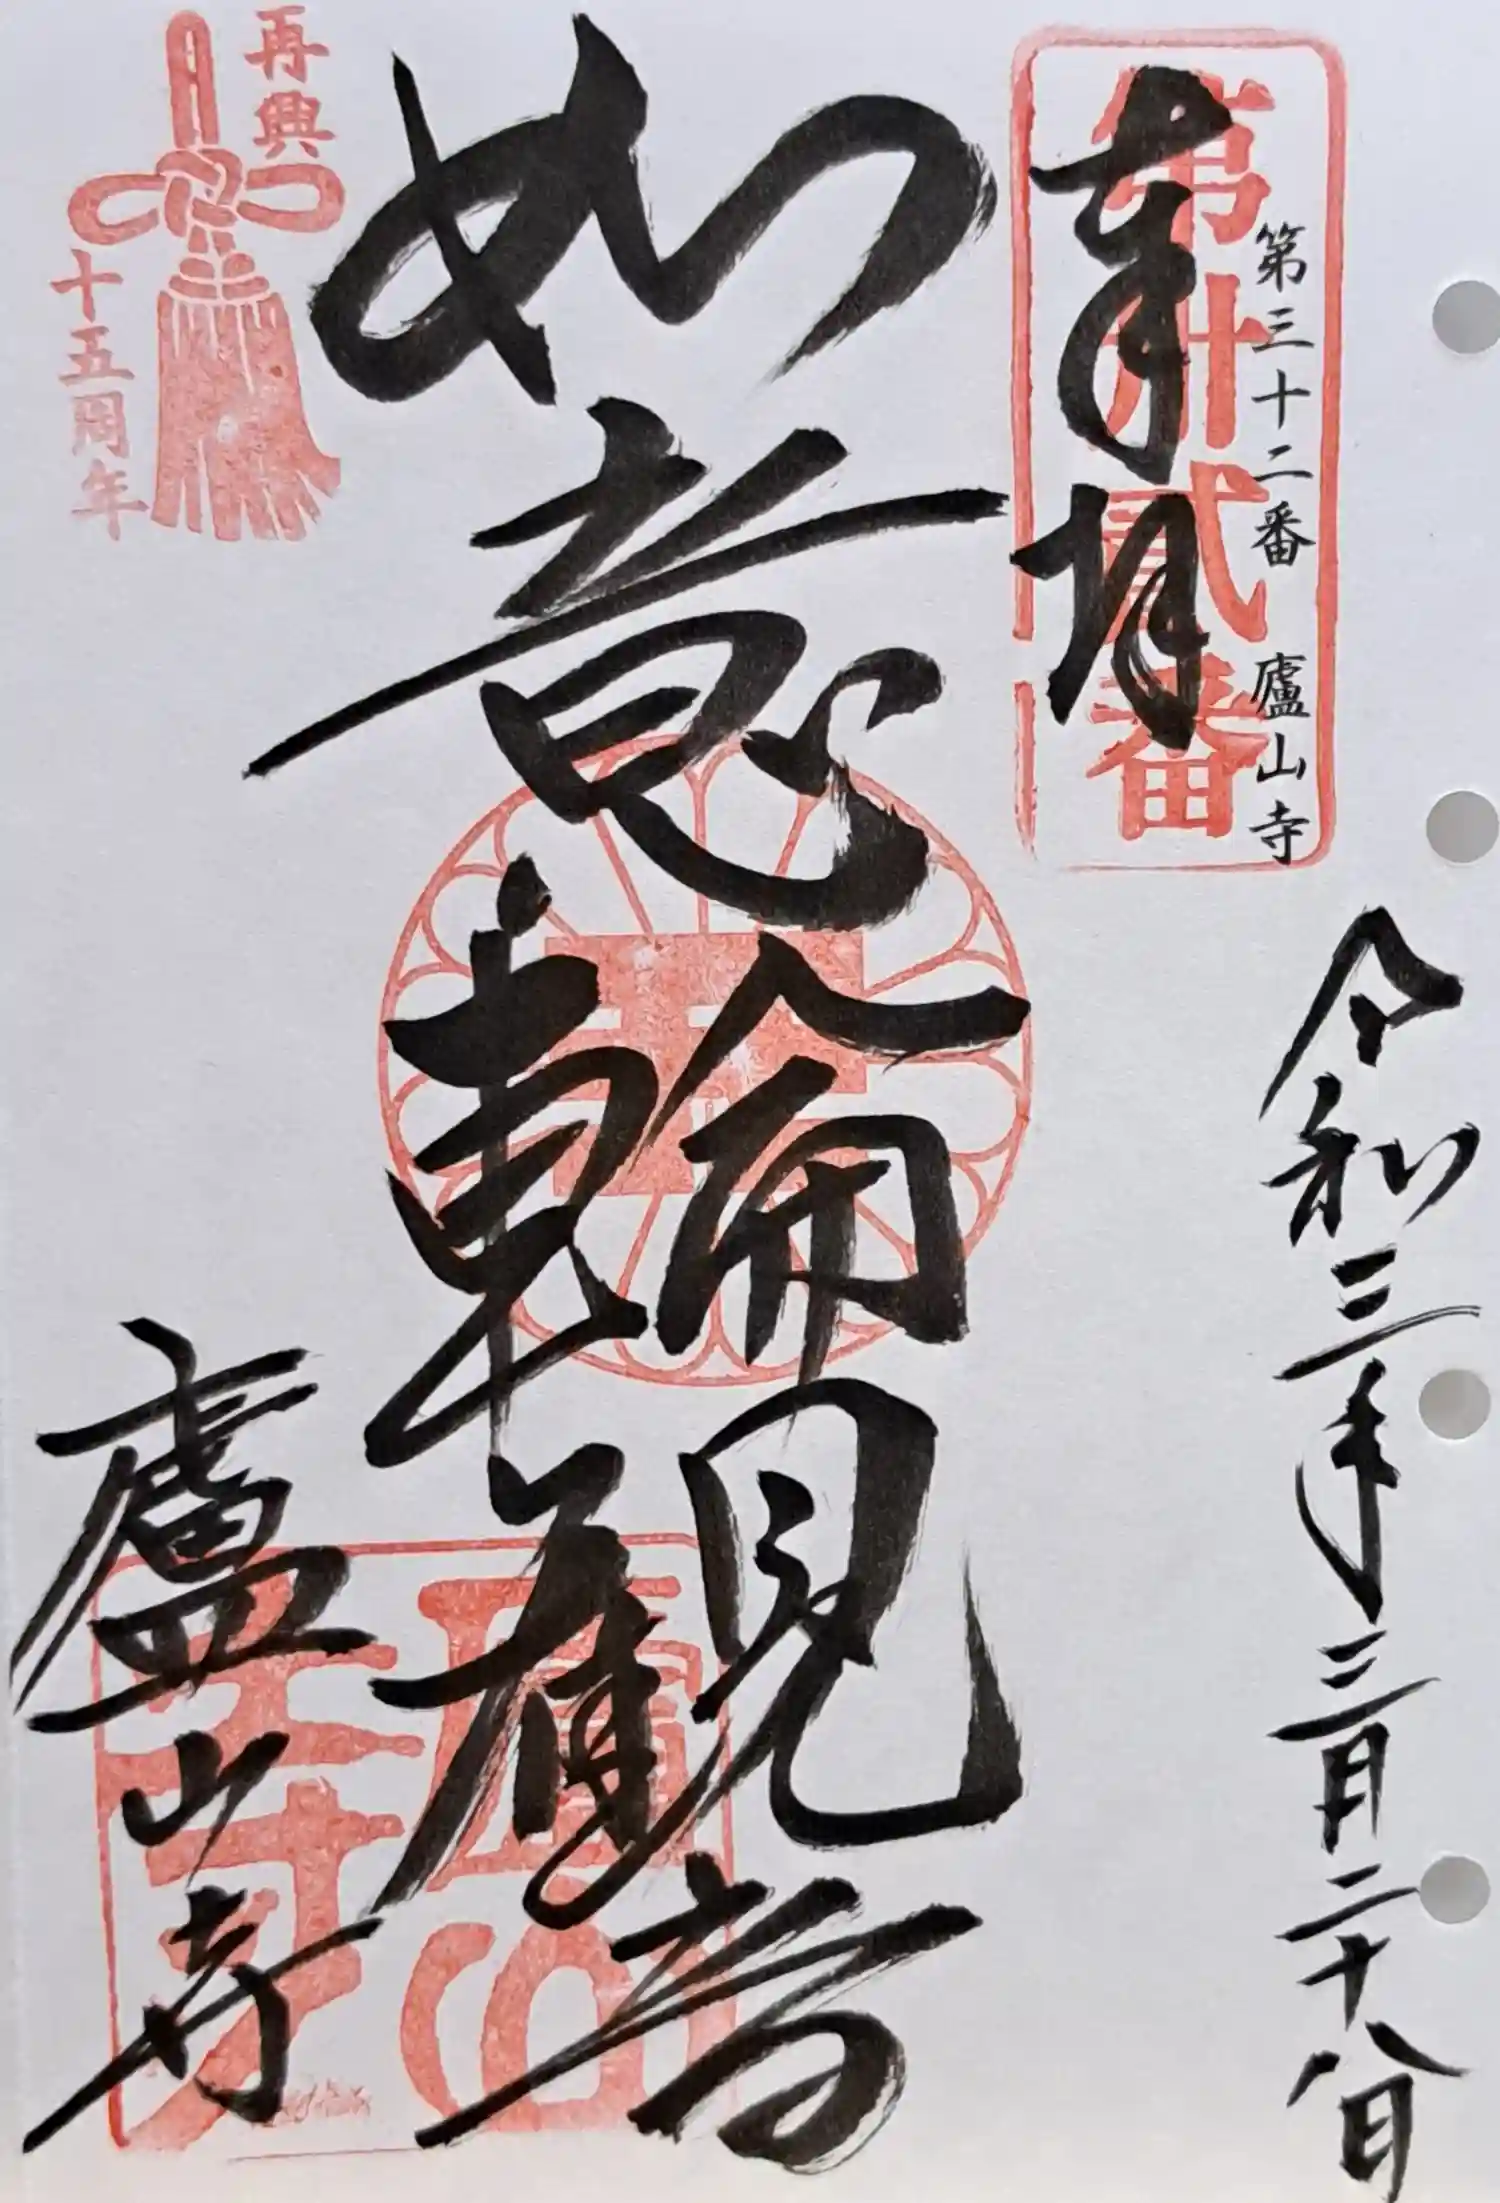 第三十二番 廬山寺
第卅貳番
奉拝
令和三年三月二十八日
如意輪観音
廬山寺
再興
十五周年